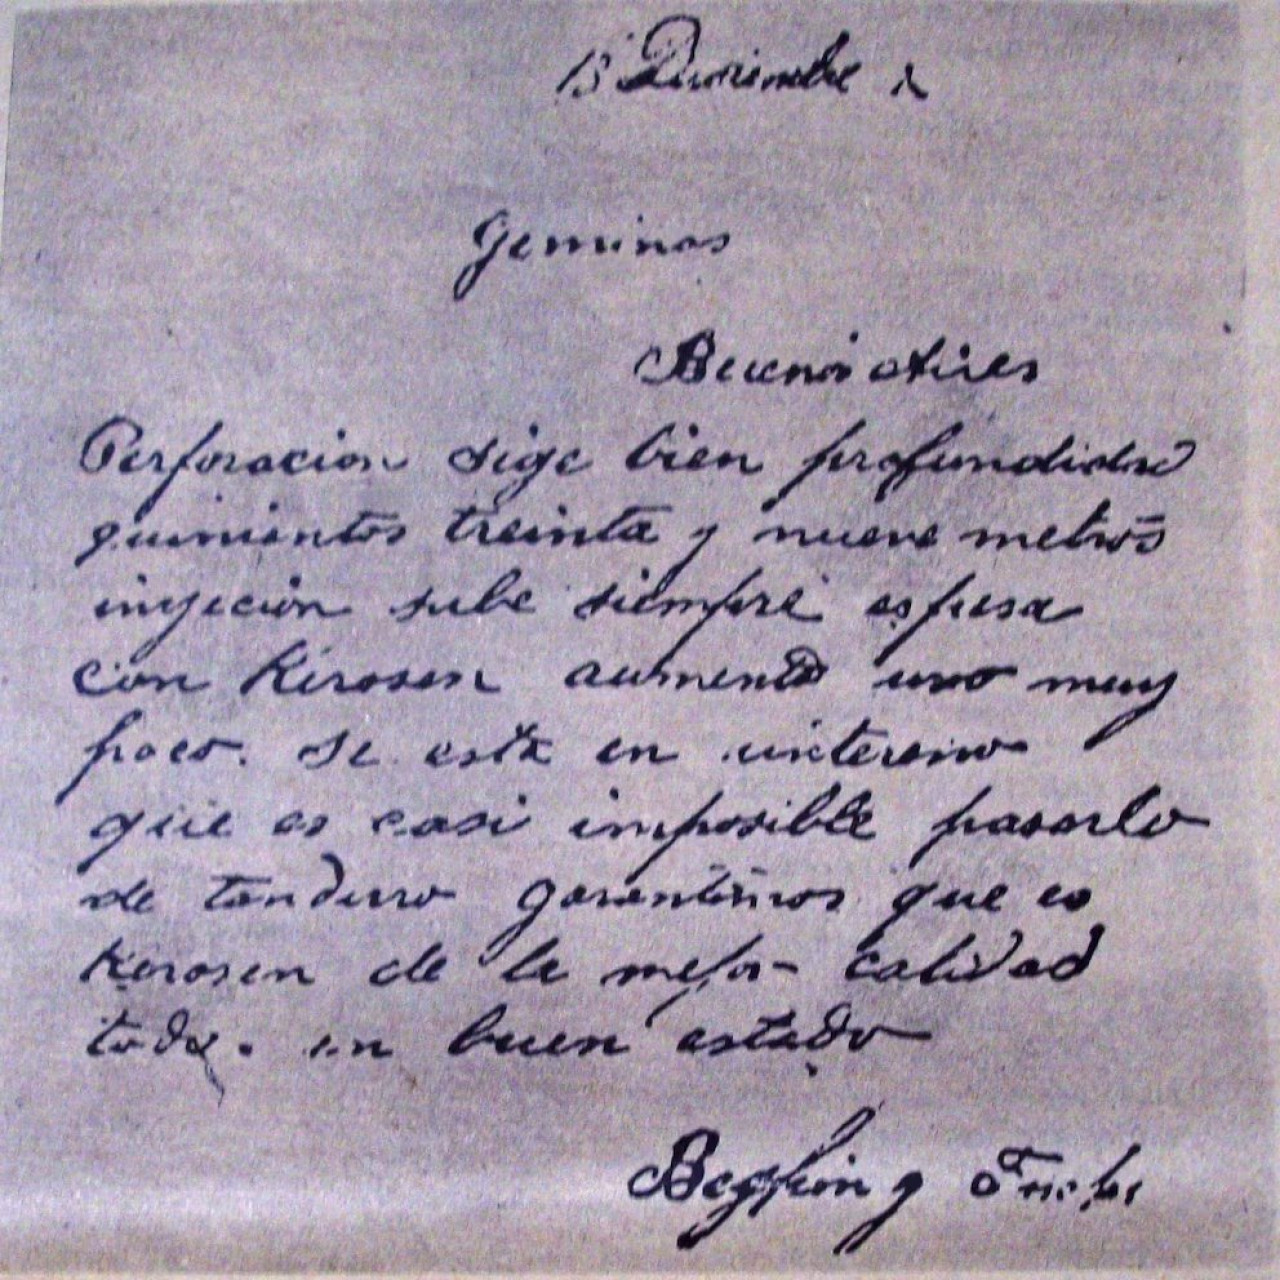 13 Diciembre
Geminas
Buenos Aires
Perforacion sige bien profundidad
quinientos treinta y nueve metros
inyecion sube siempre espesa
con Kirosen aumento uno muy
poco. Se esta en un tereno
que es casi imposible pasarlo
de tan duro garantimos que es
Kerosen de la mejor calidad
todo. en buen estado
Beghin y Fuchs